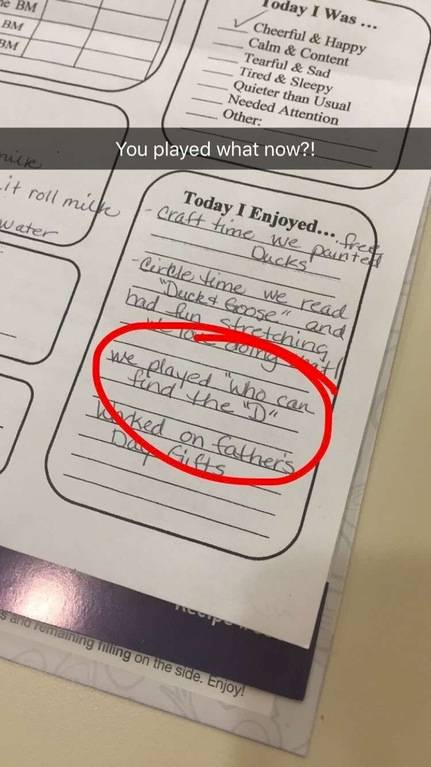 BM
BM
BM
Today I Was ...
Cheerful & Happy
Calm & Content
Tearful & Sad
Tired & Sleepy
Quieter than Usual
Needed Attention
Other:
You played what now?!
it roll milk
water
Today I Enjoyed...
- Craft time we free
painted
Ducks
- Circle time we read
"Duck & Goose" and
had fun stretching,
love doing that!
we played "who can
find the "D"
Worked on father's
Day Gifts
and remaining filling on the side. Enjoy!